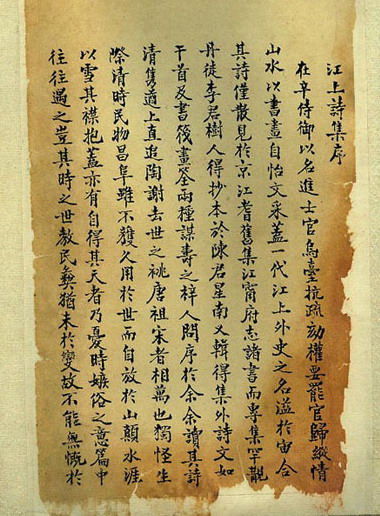 江上詩集序
在辛侍御以名進士官烏臺抗疏劾權要罷官歸縱情
山水以書畫自怡文采蓋一代江上外史之名溢於宙合
其詩僅散見於京江耆舊集江甯府志諸書而專集罕覯
丹徒李君樹人得抄本於陳君星南又輯得集外詩文如
干首及書筏畫筌兩種謀壽之梓人問序於余余讀其詩
清雋遒上直追陶謝去世之祧唐祖宋者相萬也獨怪生
際清時民物昌阜雖不獲久用於世而自放於山顛水涯
以雪其襟抱蓋亦有自得其天者乃憂時嫉俗之意篇中
往往遇之豈其時之世教民彝猶未於變故不能無慨於